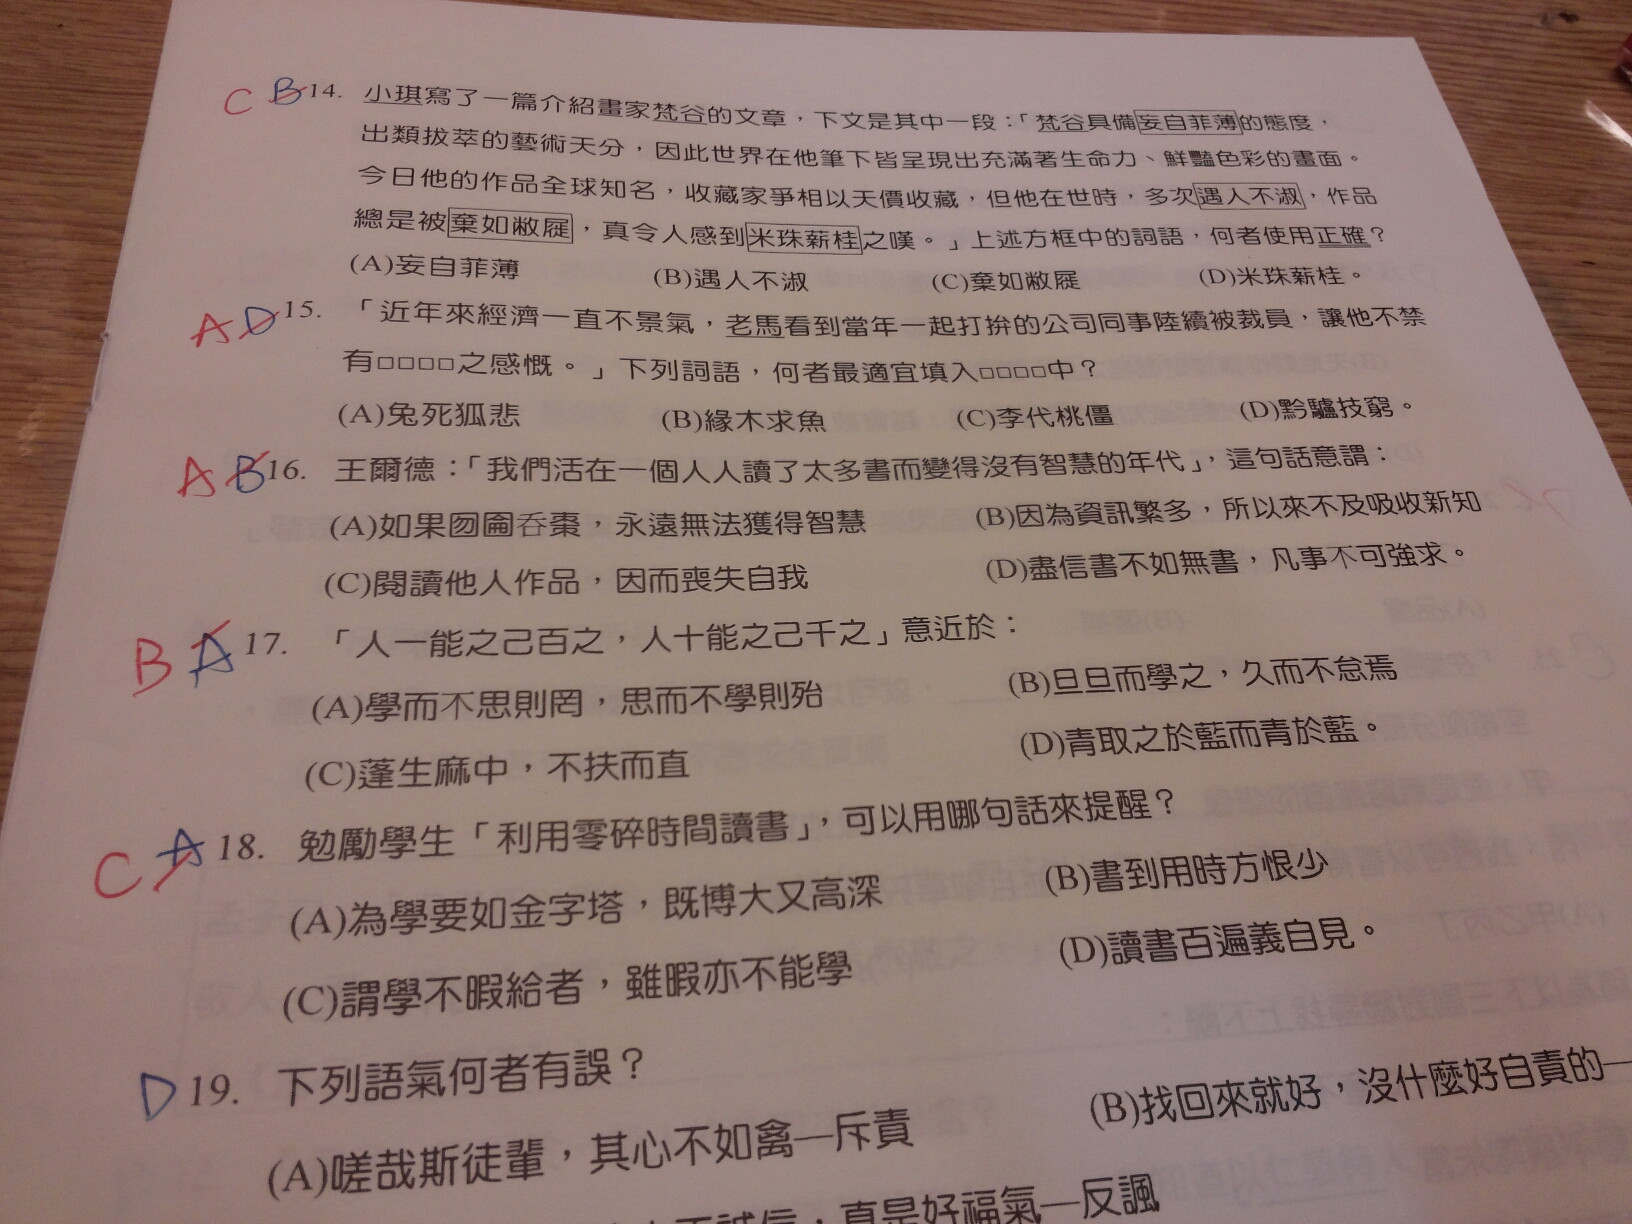 C B 14. 小琪寫了一篇介紹畫家梵谷的文章，下文是其中一段：「梵谷具備妄自菲薄的態度，
出類拔萃的藝術天分，因此世界在他筆下皆呈現出充滿著生命力、鮮豔色彩的畫面。
今日他的作品全球知名，收藏家爭相以天價收藏，但他在世時，多次遇人不淑，作品
總是被棄如敝屣，真令人感到米珠薪桂之嘆。」上述方框中的詞語，何者使用正確？
(A)妄自菲薄 (B)遇人不淑 (C)棄如敝屣 (D)米珠薪桂。
A D 15. 「近年來經濟一直不景氣，老馬看到當年一起打拚的公司同事陸續被裁員，讓他不禁
有□□□□之感慨。」下列詞語，何者最適宜填入□□□□中？
(A)兔死狐悲 (B)緣木求魚 (C)李代桃僵 (D)黔驢技窮。
A B 16. 王爾德：「我們活在一個人人讀了太多書而變得沒有智慧的年代」，這句話意謂：
(A)如果囫圇吞棗，永遠無法獲得智慧 (B)因為資訊繁多，所以來不及吸收新知
(C)閱讀他人作品，因而喪失自我 (D)盡信書不如無書，凡事不可強求。
B A 17. 「人一能之己百之，人十能之己千之」意近於：
(A)學而不思則罔，思而不學則殆 (B)旦旦而學之，久而不怠焉
(C)蓬生麻中，不扶而直 (D)青取之於藍而青於藍。
C A 18. 勉勵學生「利用零碎時間讀書」，可以用哪句話來提醒？
(A)為學要如金字塔，既博大又高深 (B)書到用時方恨少
(C)謂學不暇給者，雖暇亦不能學 (D)讀書百遍義自見。
D 19. 下列語氣何者有誤？
(A)嗟哉斯徒輩，其心不如禽—斥責 (B)找回來就好，沒什麼好自責的—
不誠信，真是好福氣—反諷